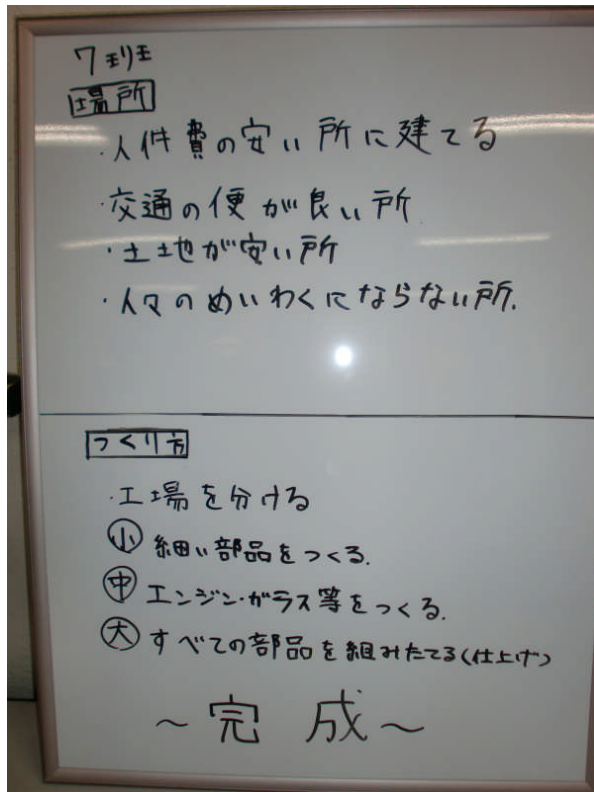 場所
・人件費の安い所に建てる
・交通の便が良い所
・土地が安い所
・人々のめいわくにならない所.
つくり方
・工場を分ける
小 細い部品をつくる.
中 エンジン・ガラス等をつくる.
大 すべての部品を組みたてる(仕上げ)
〜完成〜